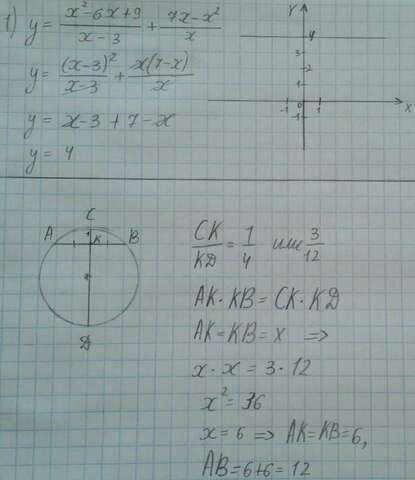 1) y = (x²-6x+9)/(x-3) + (7x-x²)/x
y = (x-3)²/(x-3) + x(7-x)/x
y = x-3+7-x
y = 4
Y
4
3
2
1
-1 0 1 X
-1
C
A K B
D
CK/KD = 1/4 или 3/12
AK·KB = CK·KD
AK=KB=x ⟹
x·x = 3·12
x² = 36
x = 6 ⟹ AK=KB=6,
AB=6+6=12